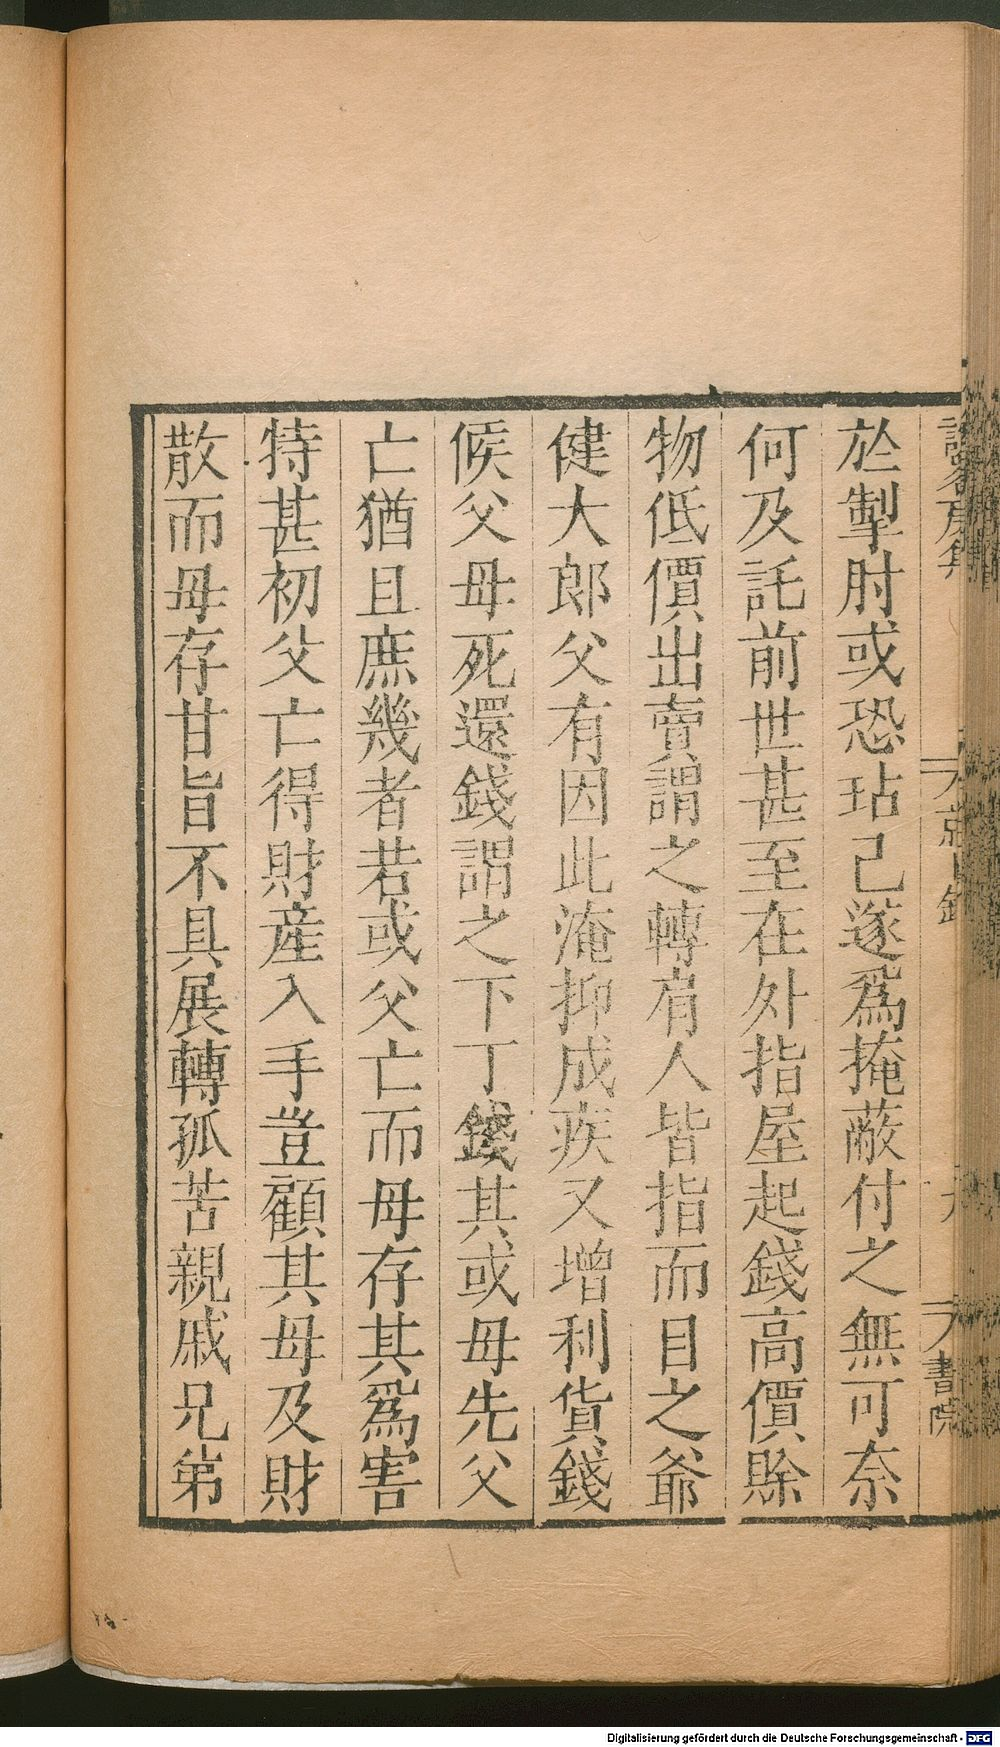 於掣肘或恐玷己遂爲掩蔽付之無可奈
何及託前世甚至在外指屋起錢高價賒
物低價出賣謂之轉肩人皆指而目之爺
健大郎父有因此淹抑成疾又增利貨錢
候父母死還錢謂之下丁錢其或母先父
亡猶且庶幾者若或父亡而母存其爲害
特甚初父亡得財産入手豈顧其母及財
散而母存甘旨不具展轉孤苦親戚兄弟
書院
Digitalisierung gefördert durch die Deutsche Forschungsgemeinschaft - DFG